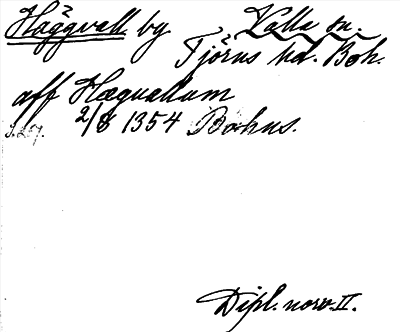 Häggvall by Valla sn.
Tjörns hd. Boh.
aff Hæquallum
s. 27. 2/8 1354 Bohus.
Dipl. norv. II.